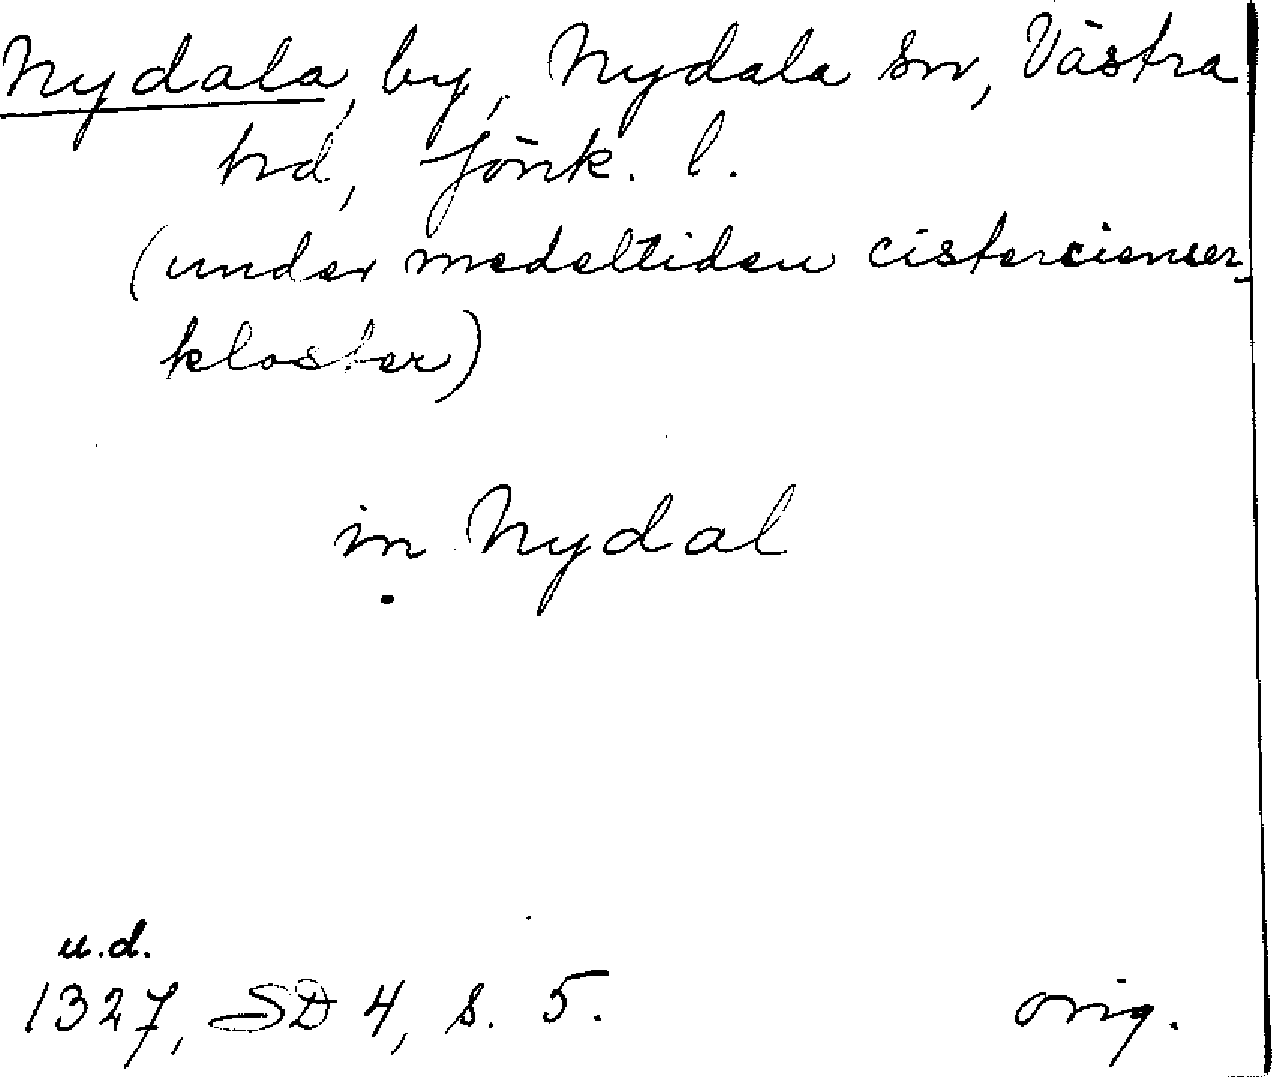 Nydala, by, Nydala sn, Västra
hd, Jönk. l.
(under medeltiden cistercienser-
kloster)
in Nydal
u.d.
1327, SD 4, s. 5. orig.